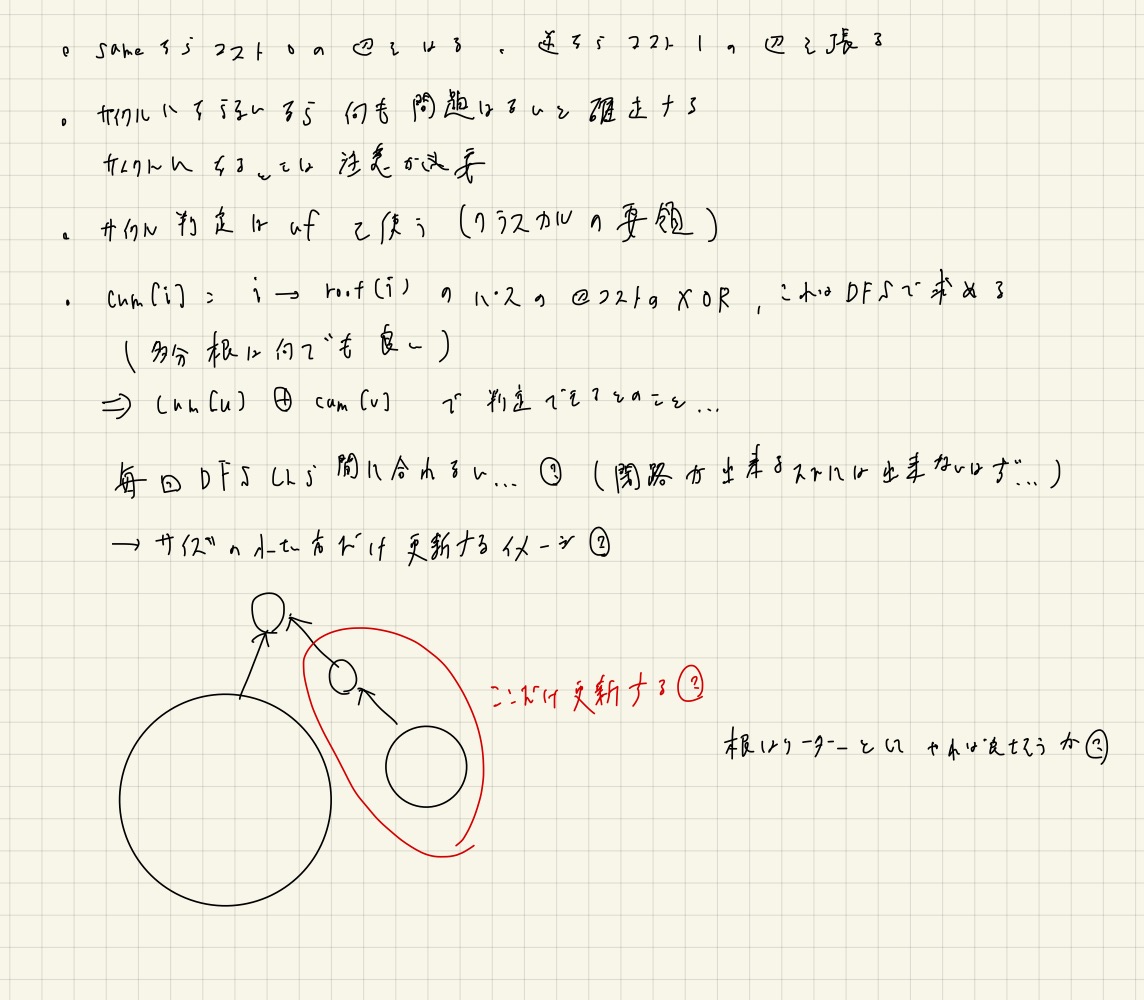 • sameならコスト0の辺をはる. 逆ならコスト1の辺を張る
• サイクルにならないなら何も問題はないと確定する
サイクルになるときは注意が必要
• サイクル判定はufを使う (クラスカルの要領)
• cum[i] = i → root(i) のパスの コストのXOR, これはDFSで求める
(多分根は何でも良い)
⇒ cum[u] ⊕ cum[v] で判定できるとのこと...
毎回DFSしたら間に合わない... ? (閉路が出来るまでには出来ないはず...)
→ サイズの小さい方だけ更新するイメージ ?
ここだけ更新する ?
根はリーダーとして やれば良さそうか ?